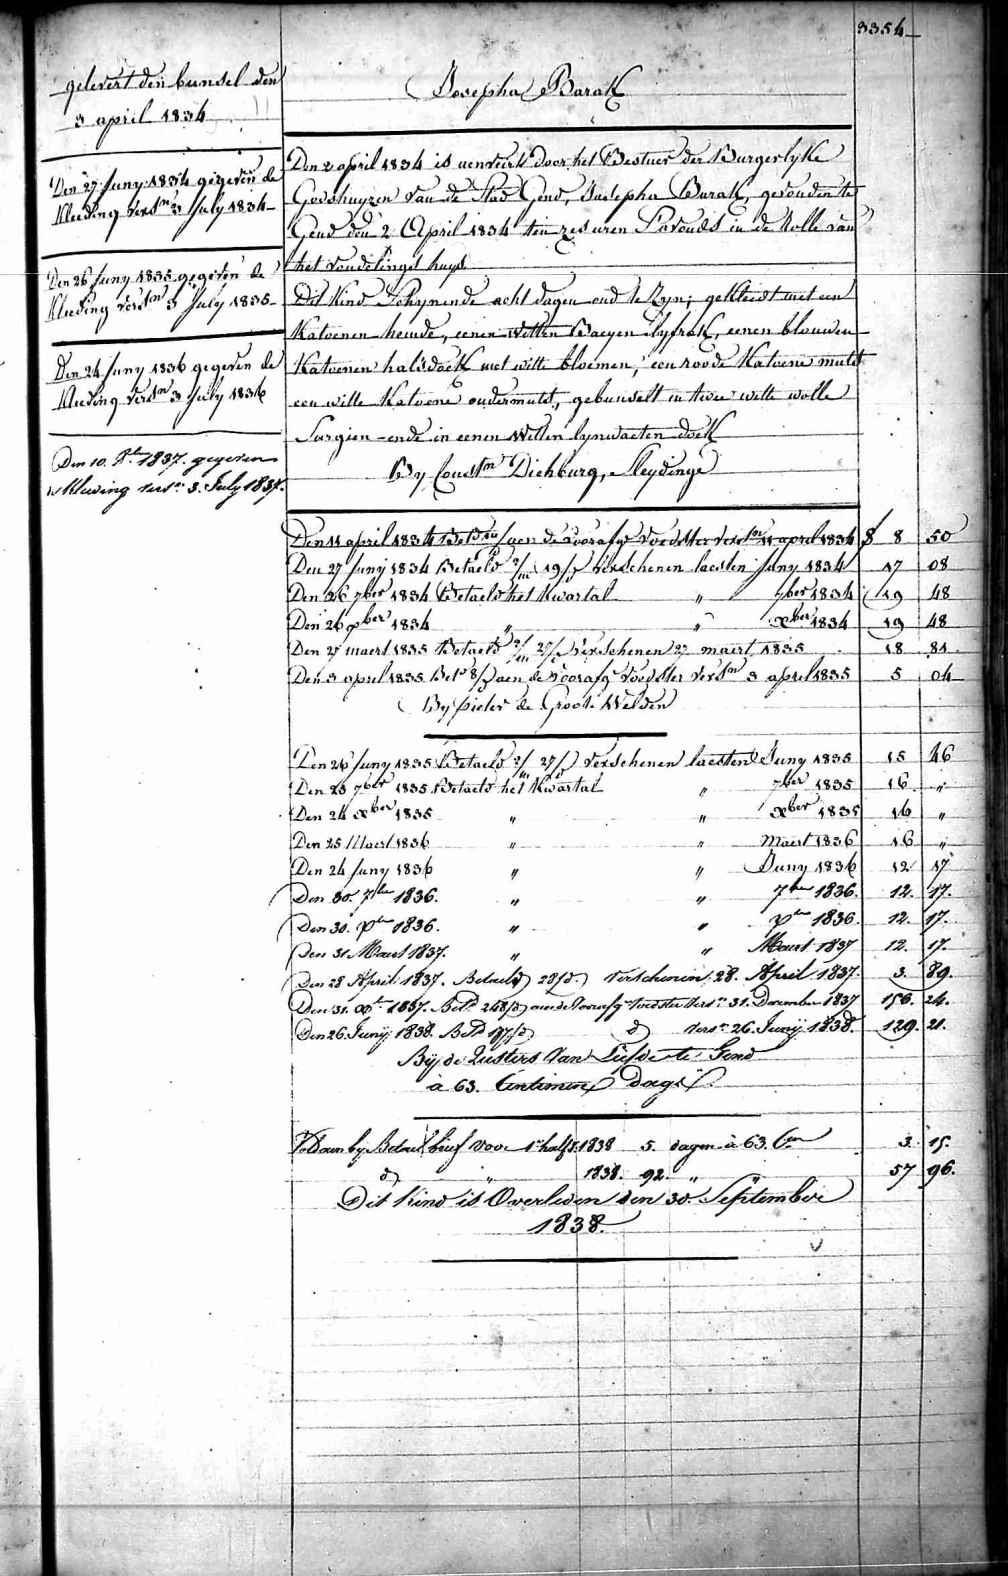 3354
gelevert den bunsel den
3 april 1834
Den 27 Juny 1834 gegeven de
Kleeding versn 3 July 1834
Den 26 Juny 1835 gegeven de
Kleeding versn 3 July 1835
Den 24 Juny 1836 gegeven de
Kleeding versn 3 July 1836
Den 10. 1837. gegeven
Kleeding versn 3. July 1837.
Josepha Barak
Den 2 april 1834 is aenveert door het Bestuer der Burgerlyke
Godshuyzen van de Stad Gend, Josepha Barak, gevonden te
Gend den 2 April 1834 ten zes uren s'avonds in de Rolle van
het vondelings huys
Dit Kind schynende acht dagen oud te zyn; gekleedt met een
Katoenen hemde, eenen witten Baeyen lyfrok, eenen blouwen
Katoenen halsdoek met witte bloemen, een roode Katoene mutst
een witte Katoene ondermutst, gebunselt in twee witte wolle
Sargien ende in eenen Witten lynwaeten doek
By Constn Dichburg, Sleydinge
Den 11 april 1834 aen de voorafg voedster versn 11 april 1834 8 50
Den 27 Juny 1834 Betaeld 2/m 19/d Verschenen laesten Juny 1834 17 08
Den 26 7ber 1834 Betaeld het Kwartal " 7ber 1834 19 48
Den 26 xber 1834 " " xber 1834 19 48
Den 27 maert 1835 Betaeld 2/m 27/d Verschenen 27 maert 1835 18 81
Den 3 april 1835 Betd 8/d aen de voorafg voedster versn 3 april 1835 5 04
By pieter de Groote Welden
Den 26 Juny 1835 Betaeld 2/m 27/d verschenen laesten Juny 1835 15 46
Den 25 7ber 1835 Betaeld het Kwartal " 7ber 1835 16 "
Den 24 xber 1835 " " xber 1835 16 "
Den 25 Maert 1836 " " Maert 1836 16 "
Den 24 Juny 1836 " " Juny 1836 12 17
Den 30. 7ber 1836. " " 7ber 1836. 12. 17.
Den 30. xber 1836. " " xber 1836. 12. 17.
Den 31. Maert 1837. " " Maert 1837 12. 17.
Den 28 April 1837. Betaeld 28/d. Verschenen 28. April 1837. 3. 89.
Den 31. xber 1837. Betd 248/d aen de voorafg voedster versn 31. December 1837 156. 24.
Den 26. Junij 1838. Betd 177/d d versn 26. Junij 1838. 129. 21.
Bij de Zusters Van Liefde te Gend
à 63. Centimen Daegs.
Voldaen bij Betaelbrief voor 1e half j. 1838 5. dagen à 63. Cen 3. 15.
d " 1838. 92. " " 57 96.
Dit Kind is Overleden den 30. September
1838.